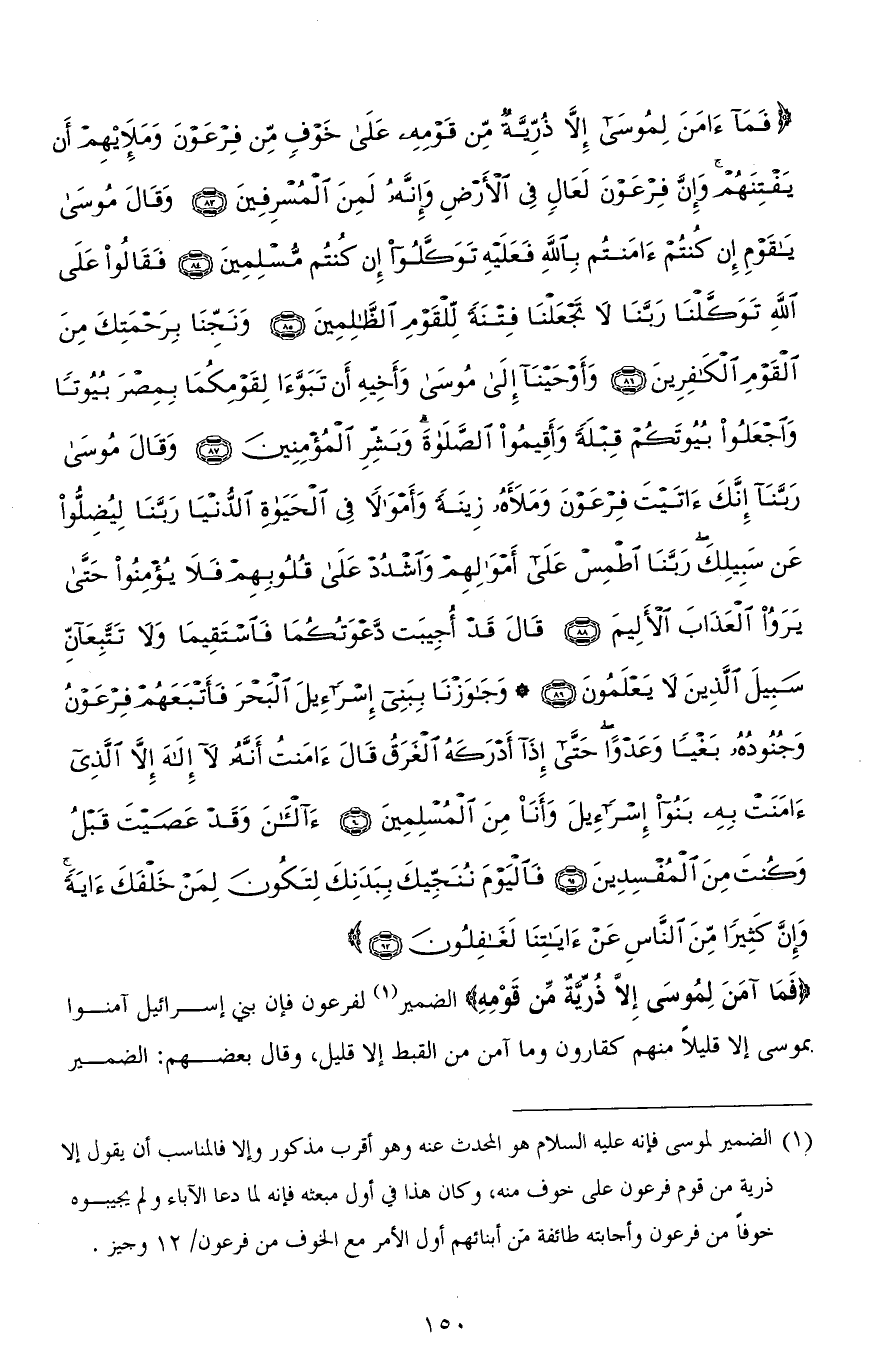 ﴿ فَمَآ ءَامَنَ لِمُوسَىٰٓ إِلَّا ذُرِّيَّةٌ مِّن قَوْمِهِۦ عَلَىٰ خَوْفٍ مِّن فِرْعَوْنَ وَمَلَإِيْهِمْ أَن
يَفْتِنَهُمْ ۚ وَإِنَّ فِرْعَوْنَ لَعَالٍ فِى ٱلْأَرْضِ وَإِنَّهُۥ لَمِنَ ٱلْمُسْرِفِينَ ﴿٨٣﴾ وَقَالَ مُوسَىٰ
يَـٰقَوْمِ إِن كُنتُمْ ءَامَنتُم بِٱللَّهِ فَعَلَيْهِ تَوَكَّلُوٓا۟ إِن كُنتُم مُّسْلِمِينَ ﴿٨٤﴾ فَقَالُوا۟ عَلَى
ٱللَّهِ تَوَكَّلْنَا رَبَّنَا لَا تَجْعَلْنَا فِتْنَةً لِّلْقَوْمِ ٱلظَّـٰلِمِينَ ﴿٨٥﴾ وَنَجِّنَا بِرَحْمَتِكَ مِنَ
ٱلْقَوْمِ ٱلْكَـٰفِرِينَ ﴿٨٦﴾ وَأَوْحَيْنَآ إِلَىٰ مُوسَىٰ وَأَخِيهِ أَن تَبَوَّءَا لِقَوْمِكُمَا بِمِصْرَ بُيُوتًا
وَٱجْعَلُوا۟ بُيُوتَكُمْ قِبْلَةً وَأَقِيمُوا۟ ٱلصَّلَوٰةَ ۗ وَبَشِّرِ ٱلْمُؤْمِنِينَ ﴿٨٧﴾ وَقَالَ مُوسَىٰ
رَبَّنَآ إِنَّكَ ءَاتَيْتَ فِرْعَوْنَ وَمَلَأَهُۥ زِينَةً وَأَمْوَٰلًا فِى ٱلْحَيَوٰةِ ٱلدُّنْيَا رَبَّنَا لِيُضِلُّوا۟
عَن سَبِيلِكَ ۖ رَبَّنَا ٱطْمِسْ عَلَىٰٓ أَمْوَٰلِهِمْ وَٱشْدُدْ عَلَىٰ قُلُوبِهِمْ فَلَا يُؤْمِنُوا۟ حَتَّىٰ
يَرَوُا۟ ٱلْعَذَابَ ٱلْأَلِيمَ ﴿٨٨﴾ قَالَ قَدْ أُجِيبَت دَّعْوَتُكُمَا فَٱسْتَقِيمَا وَلَا تَتَّبِعَآنِّ
سَبِيلَ ٱلَّذِينَ لَا يَعْلَمُونَ ﴿٨٩﴾ * وَجَـٰوَزْنَا بِبَنِىٓ إِسْرَٰٓءِيلَ ٱلْبَحْرَ فَأَتْبَعَهُمْ فِرْعَوْنُ
وَجُنُودُهُۥ بَغْيًا وَعَدْوًا ۖ حَتَّىٰٓ إِذَآ أَدْرَكَهُ ٱلْغَرَقُ قَالَ ءَامَنتُ أَنَّهُۥ لَآ إِلَـٰهَ إِلَّا ٱلَّذِىٓ
ءَامَنَتْ بِهِۦ بَنُوٓا۟ إِسْرَٰٓءِيلَ وَأَنَا۠ مِنَ ٱلْمُسْلِمِينَ ﴿٩٠﴾ ءَآلْـَٔـٰنَ وَقَدْ عَصَيْتَ قَبْلُ
وَكُنتَ مِنَ ٱلْمُفْسِدِينَ ﴿٩١﴾ فَٱلْيَوْمَ نُنَجِّيكَ بِبَدَنِكَ لِتَكُونَ لِمَنْ خَلْفَكَ ءَايَةً ۚ
وَإِنَّ كَثِيرًا مِّنَ ٱلنَّاسِ عَنْ ءَايَـٰتِنَا لَغَـٰفِلُونَ ﴿٩٢﴾ ﴾
﴿فَمَا آمَنَ لِمُوسَى إِلاَّ ذُرِّيَّةٌ مِّن قَوْمِهِ﴾ الضمير(١) لفرعون فإن بني إســرائيل آمنــوا
بموسى إلا قليلاً منهم كقارون وما آمن من القبط إلا قليل، وقال بعضــهم: الضمــير
(١) الضمير لموسى فإنه عليه السلام هو المحدث عنه وهو أقرب مذكور وإلا فالمناسب أن يقول إلا
ذرية من قوم فرعون على خوف منه، وكان هذا في أول مبعثه فإنه لما دعا الآباء ولم يجيبــوه
خوفاً من فرعون وأجابته طائفة من أبنائهم أول الأمر مع الخوف من فرعون/ ١٢ وجيز .
١٥٠